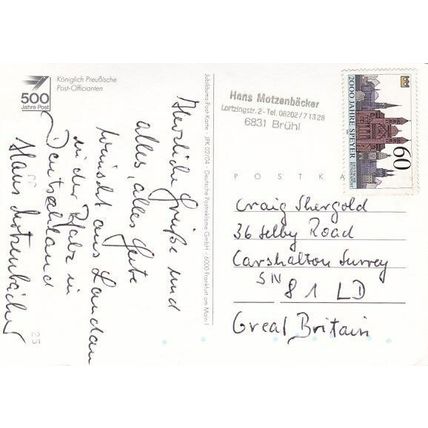 500
Jahre Post
Königlich Preußische
Post-Officianten
Herzliche Grüße und
alles, alles Gute
wünscht aus Landau
in der Pfalz in
Deutschland
Hans Motzenbäcker
Jubiläums-Post-Karte
Deutsche Postreklame GmbH · 6000 Frankfurt am Main 1
Hans Motzenbäcker
Lortzingstr. 2 - Tel. 06202/7 13 28
6831 Brühl
2000 JAHRE SPEYER
60
POSTKA
Craig Shergold
36 Selby Road
Carshalton Surrey
SN
81 LD
Great Britain
25